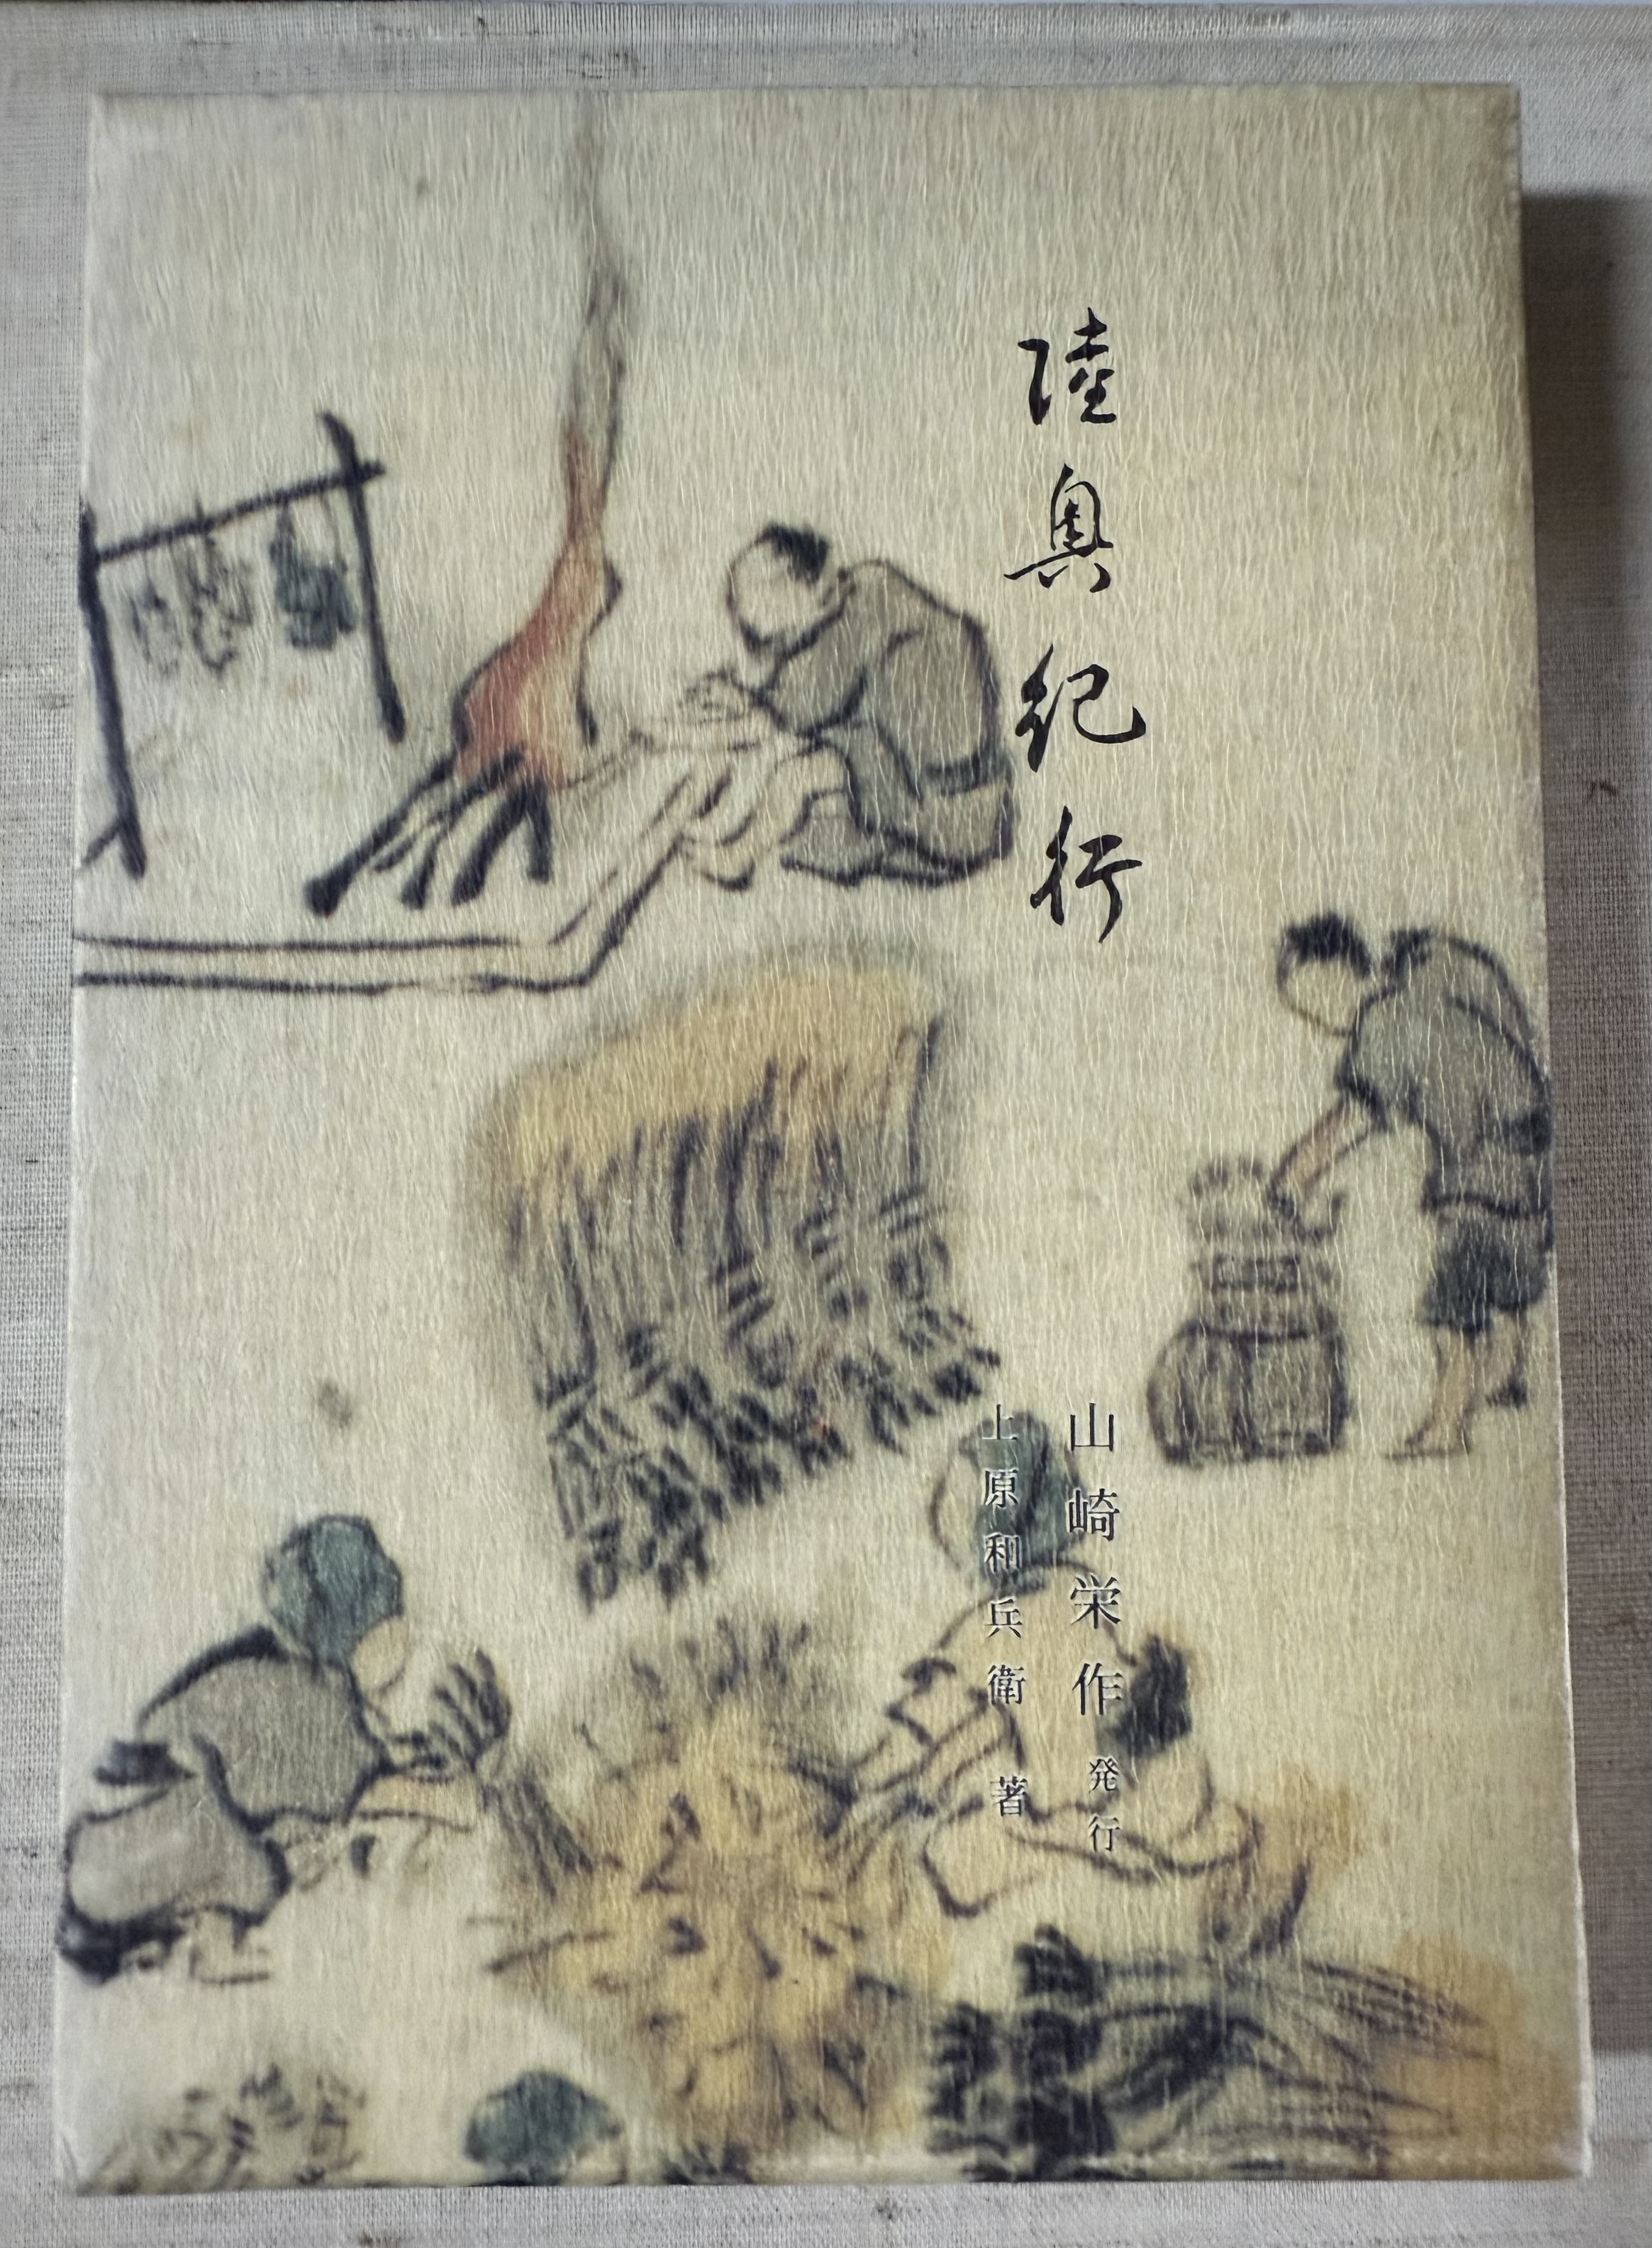 陸奥紀行
山崎栄作 発行
上原和兵衛 著